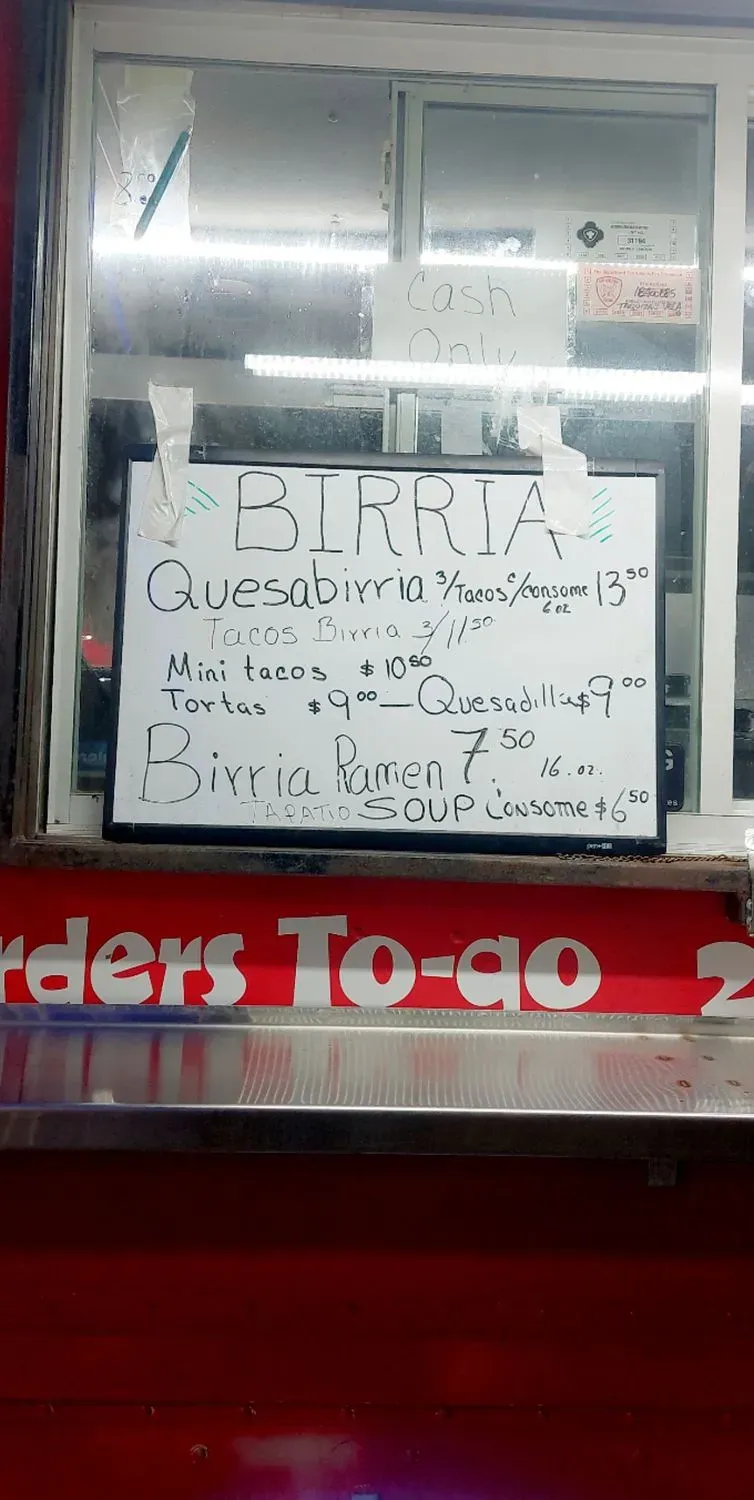 Cash
Only
31194
BIRRIA
Quesabirria 3/Tacos c/consome 13.50
6 oz
Tacos Birria 3/11.50
Mini tacos $10.50
Tortas $9.00 — Quesadillas $9.00
Birria Ramen 7.50
16.oz.
TAPATIO SOUP CONSOME $6.50
rders To-go 2